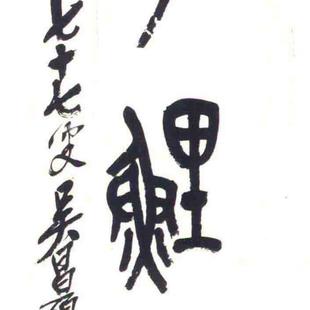 鯉
七十七叟吴昌碩